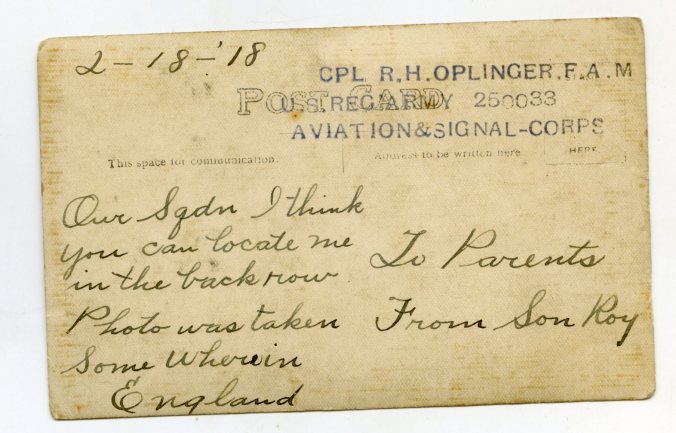 2-18-'18
CPL R.H.OPLINGER.F.A.M
POST CARD
U.S. REG ARMY 250033
AVIATION&SIGNAL-CORPS
This space for communication.
Address to be written here
HERE
Our Sqdn I think
you can locate me
in the back row
Photo was taken
Some Wherein
England
To Parents
From Son Roy